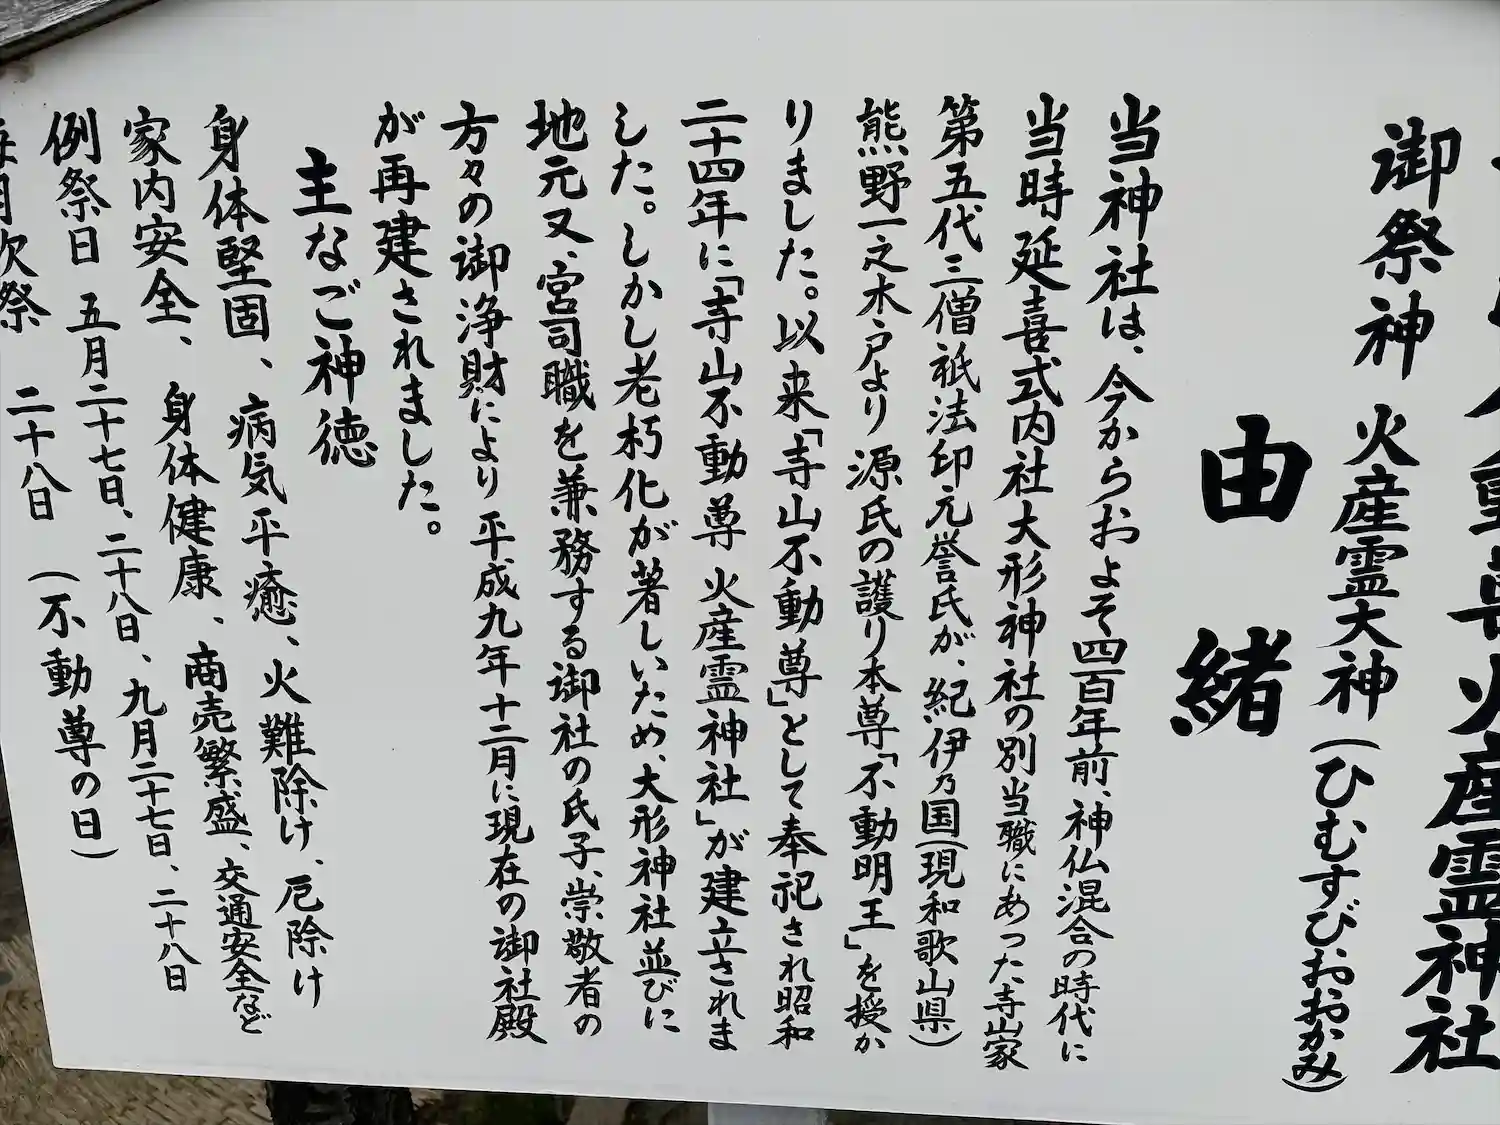 動尊火産霊神社
御祭神 火産霊大神(ひむすびおおかみ)
由緒
当神社は、今からおよそ四百年前、神仏混合の時代に
当時延喜式内社大形神社の別当職にあった寺山家
第五代三僧祇法印元誉氏が、紀伊乃国(現和歌山県)
熊野一之木戸より源氏の護り本尊「不動明王」を授か
りました。以来「寺山不動尊」として奉祀され昭和
二十四年に「寺山不動尊 火産霊神社」が建立されま
した。しかし老朽化が著しいため、大形神社並びに
地元又、宮司職を兼務する御社の氏子、崇敬者の
方々の御浄財により平成九年十二月に現在の御社殿
が再建されました。
主なご神徳
身体堅固、病気平癒、火難除け、厄除け
家内安全、身体健康、商売繁盛、交通安全など
例祭日 五月二十七日、二十八日、九月二十七日、二十八日
毎月次祭 二十八日 (不動尊の日)